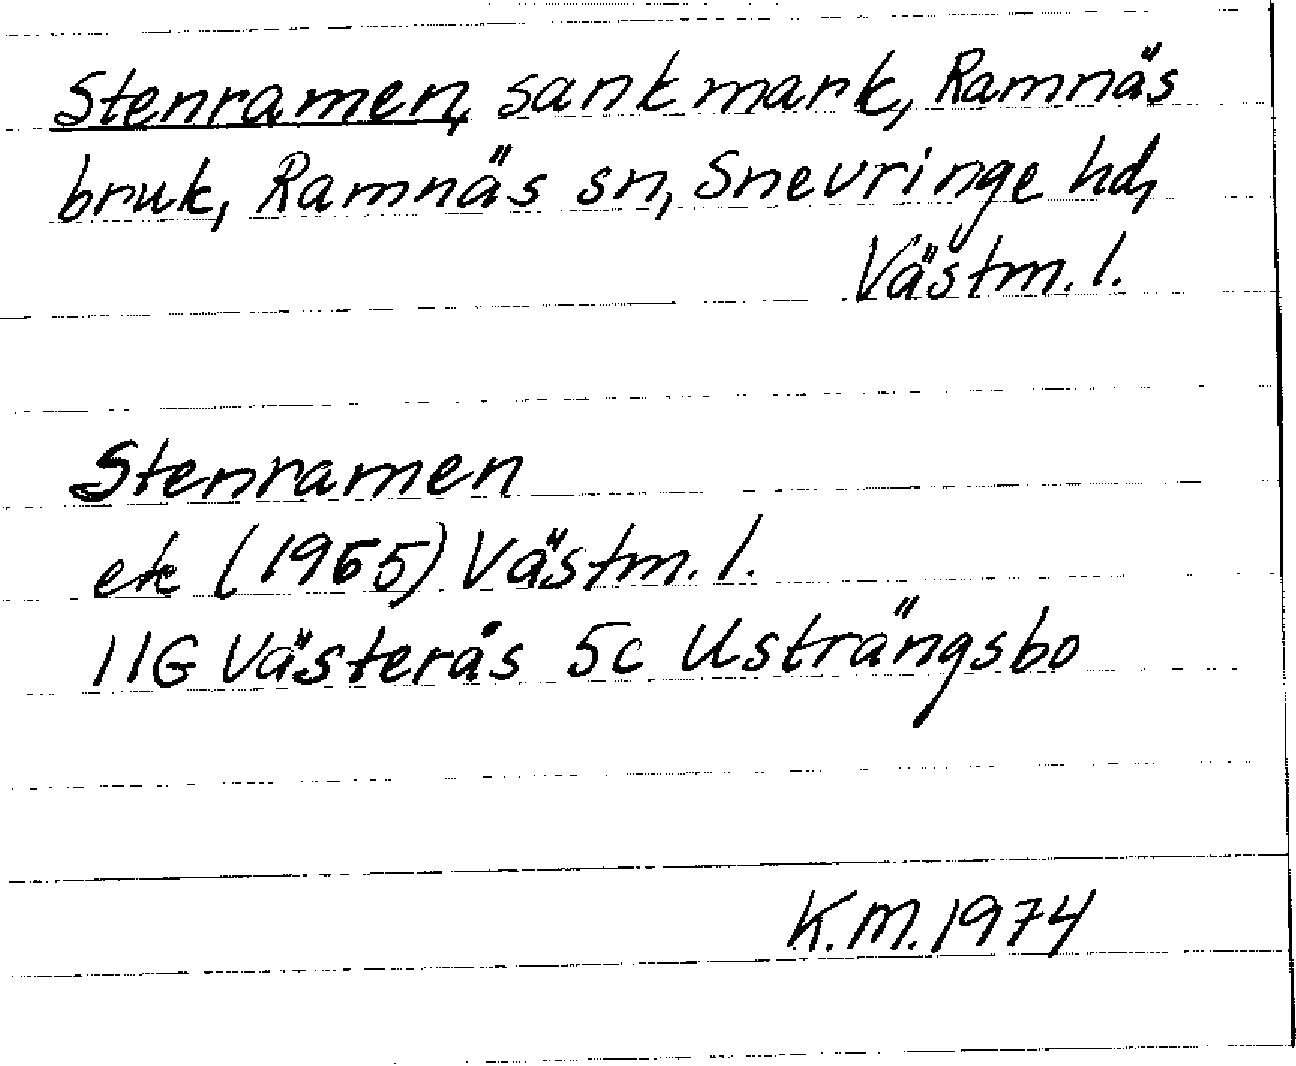 Stenramen, sankmark, Ramnäs
bruk, Ramnäs sn, Snevringe hd,
Västm. l.
Stenramen
ek (1965) Västm. l.
11G Västerås 5c Usträngsbo
K.M. 1974